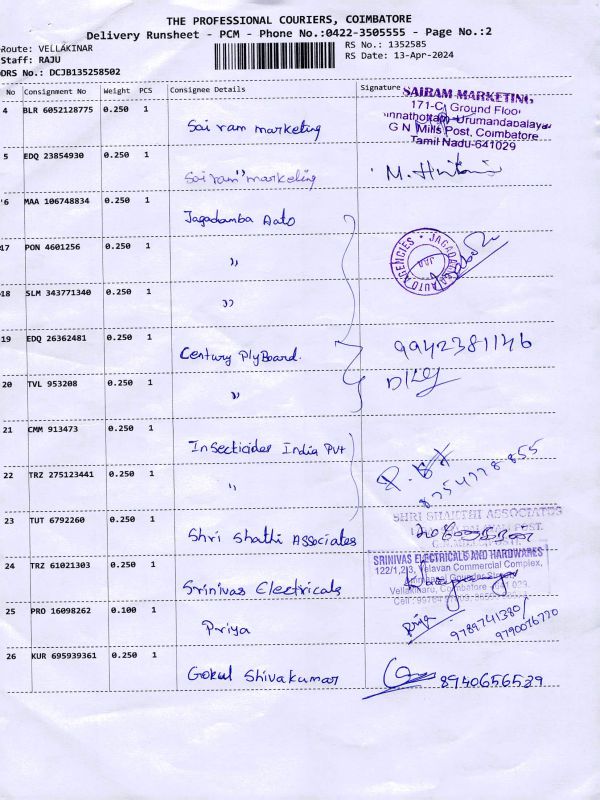 THE PROFESSIONAL COURIERS, COIMBATORE
Delivery Runsheet - PCM - Phone No.:0422-3505555 - Page No.:2
Route: VELLAKINAR
RS No.: 1352585
Staff: RAJU
RS Date: 13-Apr-2024
DRS No.: DCJB135258502
No Consignment No Weight PCS Consignee Details Signature
4 BLR 6052128775 0.250 1 Sai ram marketing
SAIRAM MARKETING
171-C, Ground Floor
Urumandapalayam
G N Mills Post, Coimbatore
Tamil Nadu-641029
5 EDQ 23854930 0.250 1 Sai ram marketing M.
'6 MAA 106748834 0.250 1 Jagadamba Auto
17 PON 4601256 0.250 1 "
JAGADAMBA AUTO AGENCIES
18 SLM 343771340 0.250 1 "
19 EDQ 26362481 0.250 1 Century PlyBoard. 9942381146
20 TVL 953208 0.250 1 "
21 CMM 913473 0.250 1 Insecticides India Pvt
22 TRZ 275123441 0.250 1 " 8754778855
23 TUT 6792260 0.250 1 Shri Shathi Associates
SHRI SHAKTHI ASSOCIATES
24 TRZ 61021303 0.250 1 Srinivas Electricals
SRINIVAS ELECTRICALS AND HARDWARES
122/1,2,3, Velavan Commercial Complex,
Vellakinaru, Coimbatore
25 PRO 16098262 0.100 1 Priya Priya 9789741380/
9790076770
26 KUR 695939361 0.250 1 Gokul Shivakumar 8940656539